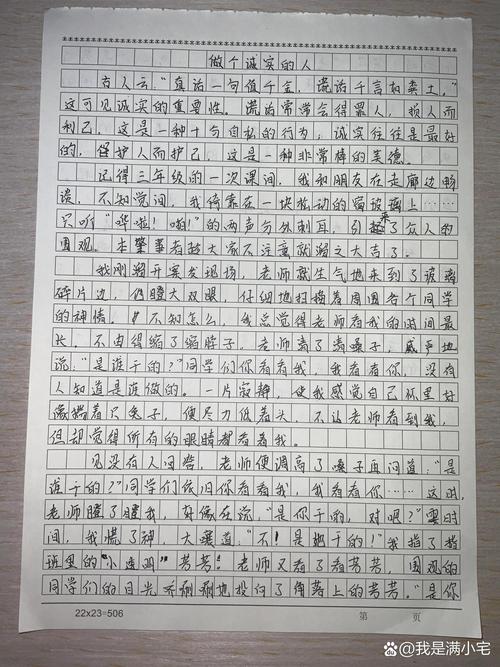 做个诚实的人
古人云:“真话一句值千金,谎话千言如粪土。”
这可见诚实的重要性。谎话常常会得罪人,损人而
利己,这是一种十分自私的行为,诚实往往是最好
的,保护人而护己,这是一种非常棒的美德。
记得三年级的一次课间,我和朋友在走廊边畅
谈,不知觉间,我倚靠在一块松动的窗玻璃上……
只听“哗啦!啪!”的两声分外刺耳,引来了众人的
围观。本肇事者趁大家不注意就溜之大吉了。
我刚离开案发现场,老师就生气地来到了玻璃
碎片边,们瞪大双眼,仔细地扫描着周围各个同学
的神情。不知怎么,我总觉得老师看我的时间最
长,不由得缩了缩脖子。老师清了清嗓子,威严地
说:“是谁干的?”同学们你看看我,我看看你,没有
人知道是谁做的。一片寂静,使我感觉自己怀里好
像揣着只兔子,便尽力低着头,不让老师看到我,
但却觉得所有的眼睛都看着我。
见没有人回答,老师便调高了嗓子再问道:“是
谁干的?”同学们依旧你看看我,我看看你……这时,
老师瞪了瞪我,好像在说,“是你干的,对吧?”霎时
间,我慌了神,大喊道:“不!是她干的!”我指了指
班里的“小透明”芳芳!老师又看了看芳芳,围观的
同学们的目光齐刷刷地投向了角落上的芳芳。“是你
22x23=506
第 页
我是满小宅